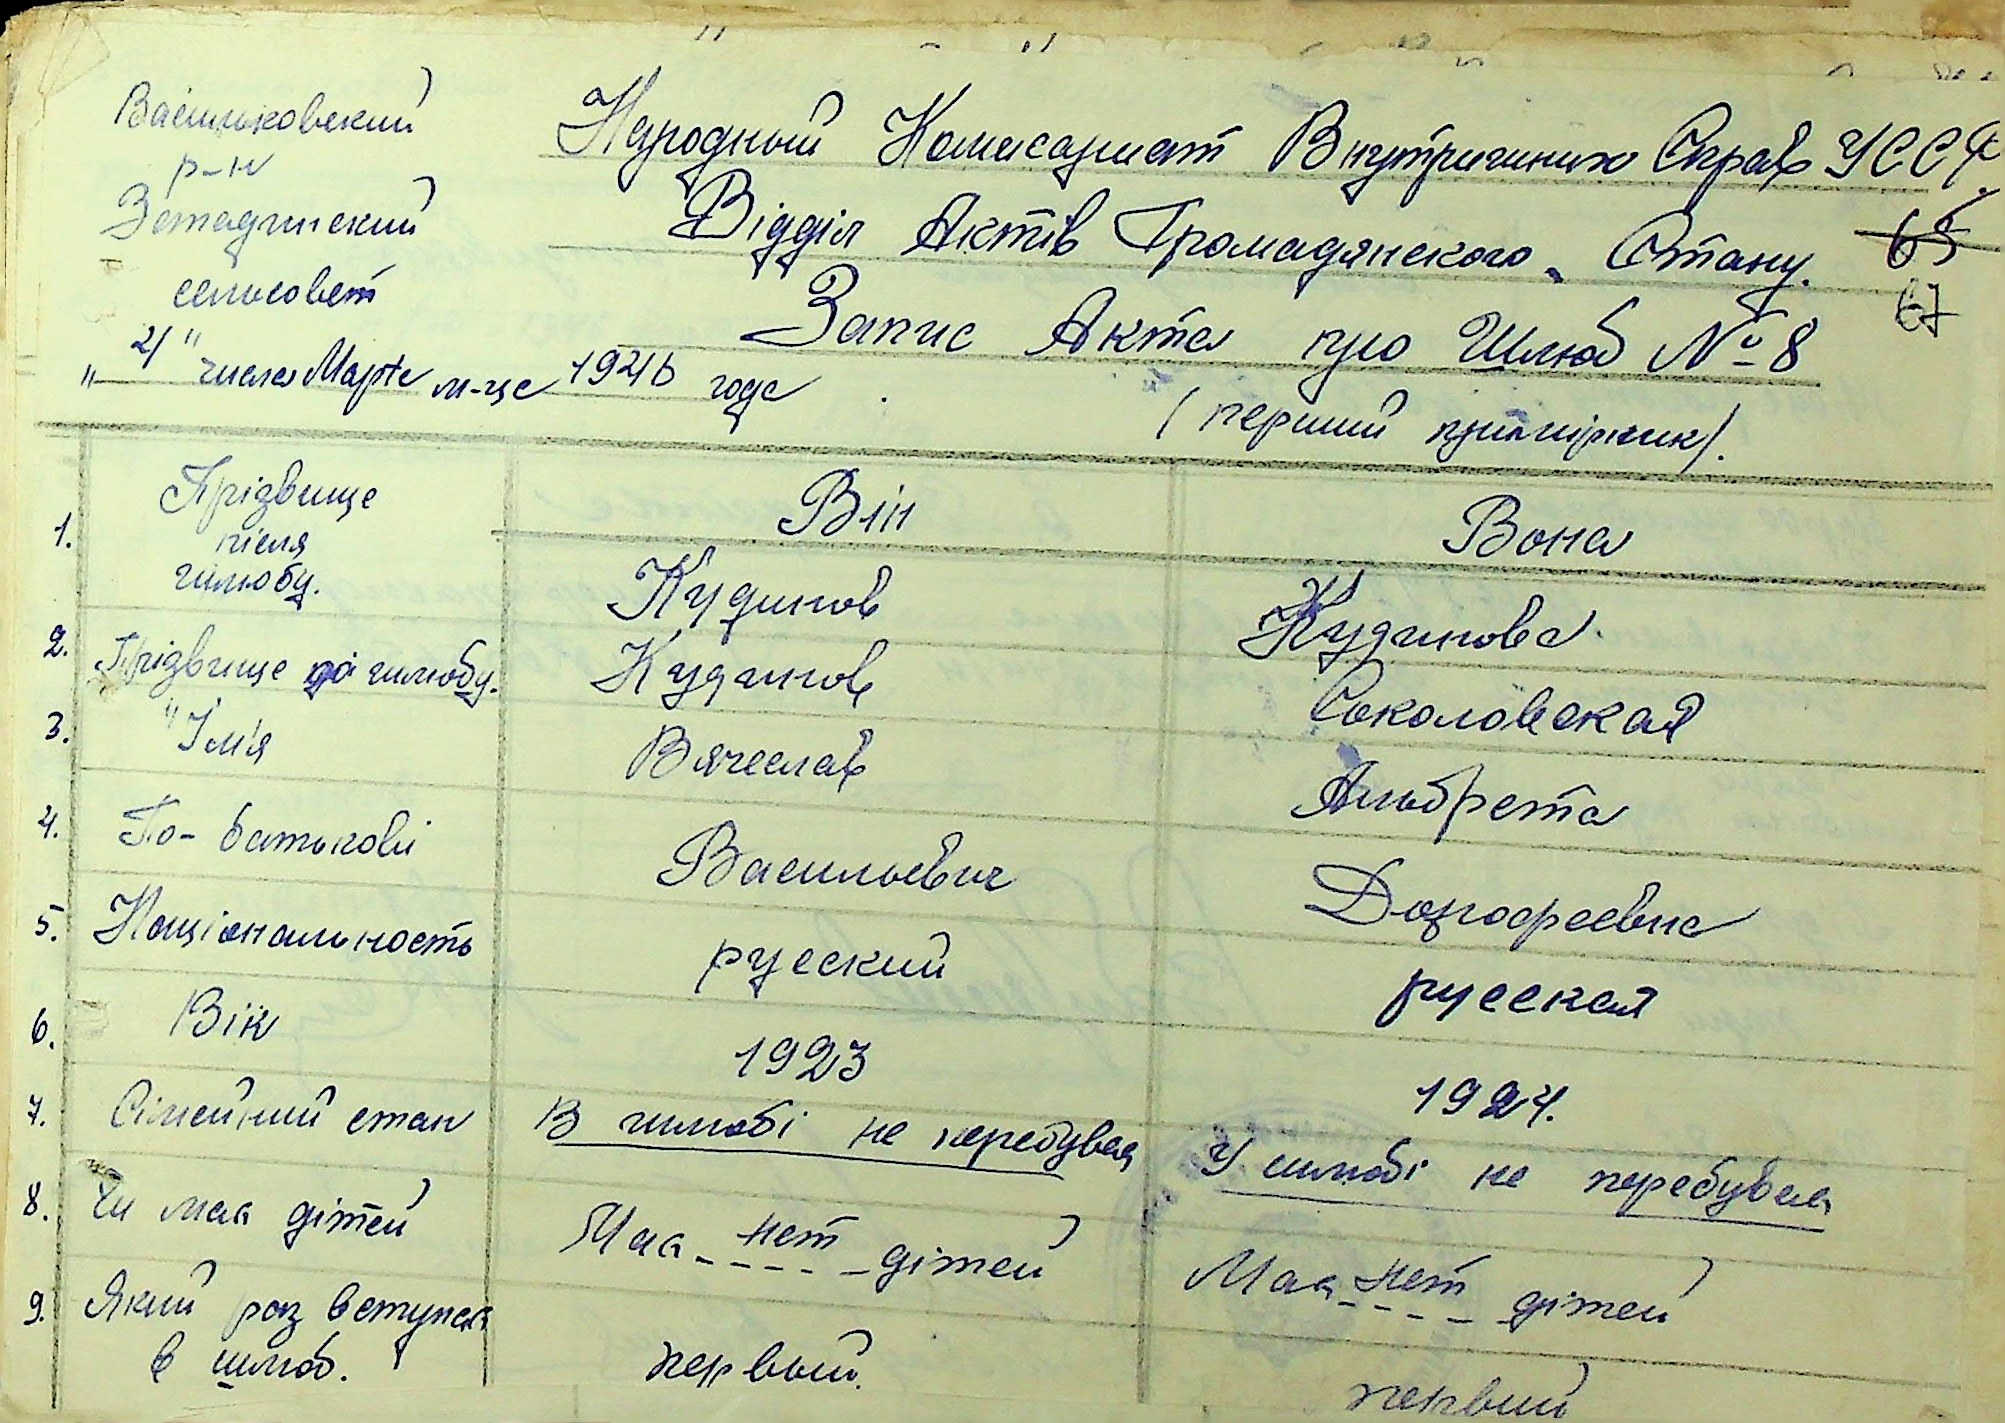 Васильковский
р-н
сельсовет
Народный Комисариат Внутришних Справ УССР.
Відділ Актів Громадянского Стану.
65
67
Запис Акта про Шлюб № 8
числа Марта м-ца 1946 года
(перший примірник).
1. Прізвище після шлюбу. Він Вона
Кудинов Кудинова
2. Прізвище до шлюбу. Кудинов Соколовская
3. Ім'я Вячеслав Альбрета
4. По-батькові Васильевич Дорофеевна
5. Національность русский русская
6. Вік 1923 1924.
7. Сімейний стан В шлюбі не перебував У шлюбі не перебувала
8. Чи має дітей Має нет дітей Має нет дітей
9. Який раз вступає
в шлюб. первый. первый